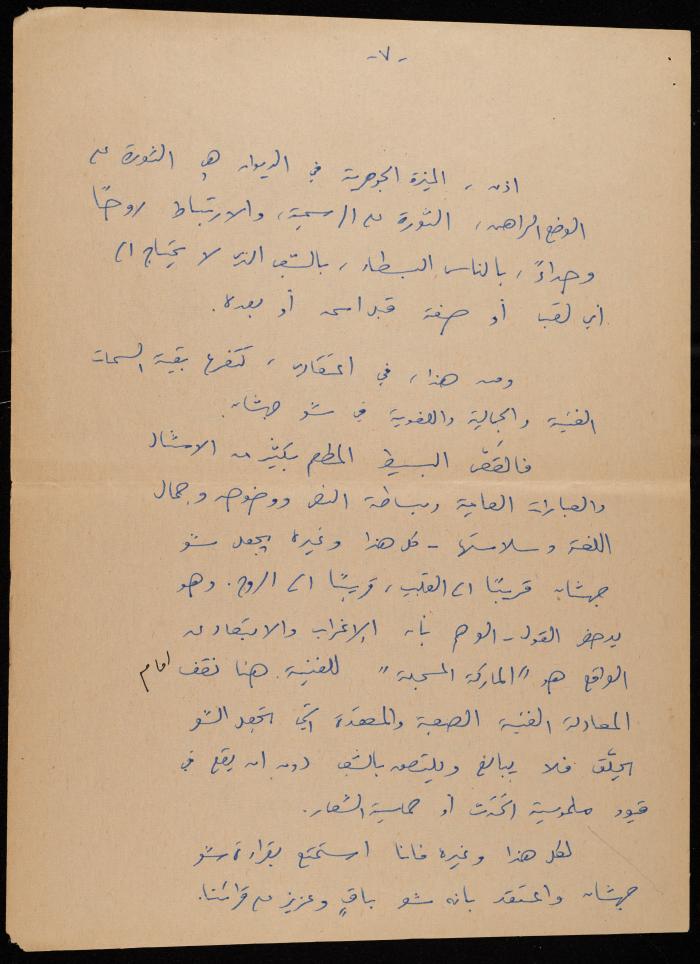 -٧-
اذن، الميزة الجوهرية في الديوان هي الثورة على
الوضع الراهن، الثورة على الرسمية، والارتباط روحًا
وجداءً، بالناس البسطاء، بالشعب الذي لا يحتاج الى
أي لقب أو صفة قبل اسمه أو بعده.
ومن هذا، في اعتقادي، تتفرع بقية السمات
الفنية والجمالية واللغوية في شعر جهشان.
فالقصّ البسيط المطعم بكثير من الامثال
والعبارات العامية وبساطة النص ووضوحه وجمال
اللغة وسلاستها - كل هذا وغيره يجعل شعر
جهشان قريبًا الى القلب، قريبًا الى الروح. وهو
يدحض القول - الوهم بأن الإغراب والابتعاد عن
الواقع هو "الماركة المسجلة" للفنية. هنا نقف امام
المعادلة الفنية الصعبة والمعقدة التي تجعل الشعر
يحلّق فلا يبالغ ويلتصق بالشعب دون ان يقع في
قيود ملموسية الحَدَث أو حماسية الشعار.
لكل هذا وغيره فانا استمتع بقراءة شعر
جهشان واعتقد بانه شعر باقٍ وعزيز على قرائنا.